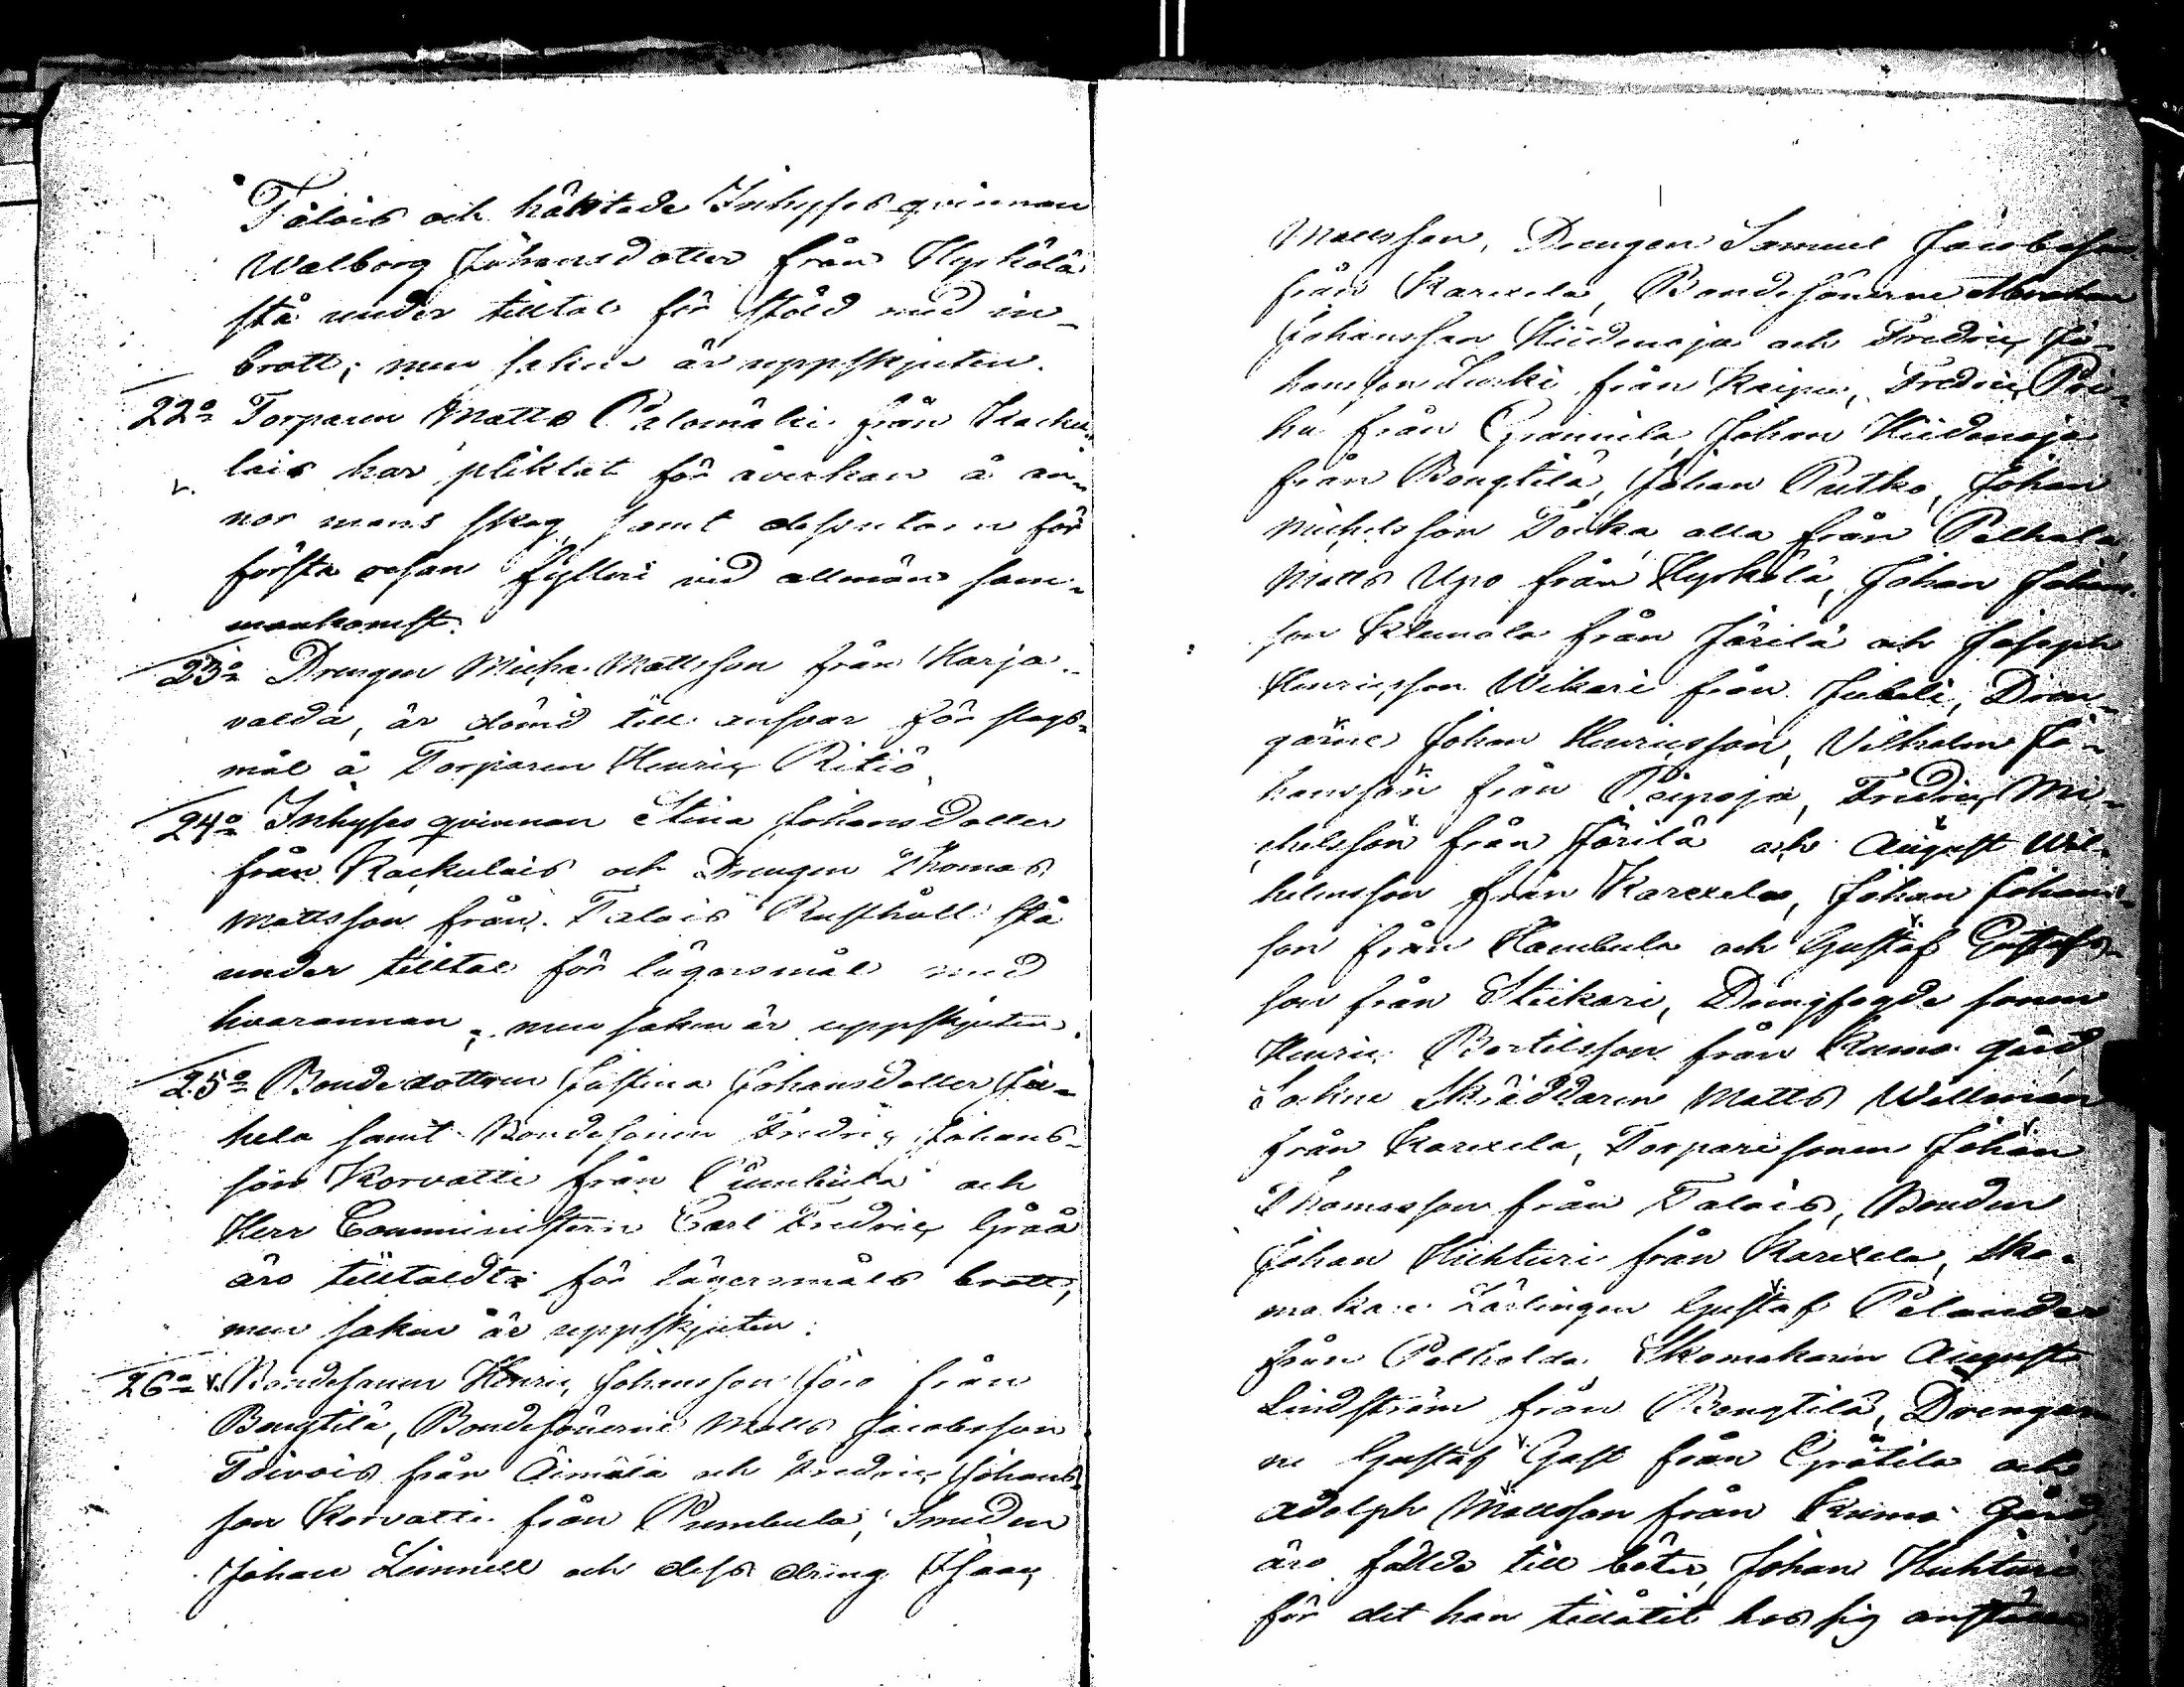 Talois och häktade Inhyses qvinnan
Walborg Johansdotter från Hyrkölä
stå under tilltal för stöld med in-
brott; men saken är uppskjuten.
22o Torparen Matts Palomäki från Kacku-
lais har pliktat för åverkan å an-
nor mans skog samt dessutom för
första resan fylleri vid allmän sam-
mankomst.
23o Drengen Micha. Mattsson från Harja-
valda, är dömd till ansvar för slags-
mål å Torparen Henric Ritiö.
24o Inhyses qvinnan Stina Johansdotter
från Kackulais och Drengen Thomas
Mattsson från Talois Rusthåll stå
under tilltal för lägersmål med
hvarannan; men saken är uppskjuten.
25o Bondedottren Justina Johansdotter
samt Bondesonen Fredric Johans-
son Korvatti från Pumbula och
Herr Comministern Carl Fredric Gråå
äro tilltaldte för lägersmåls brott,
men saken är uppskjuten.
26o Bondesonen Henric Johansson från
Bengtilä, Bondesönerne Matts Jacobsson
Toivois från Äimälä och Fredric Johans-
son Korvatti från Pumbula, Smeden
Johan Linnell och dess dräng Isaac
Mattsson, Drengen Samuel Jacobsson
från Karexela, Bondesönerne Abraham
Johansson Hiidenoja och Fredric Jo-
hansson Lurki från Kaipu, Fredric
från Grannila, Johan Hiidenoja
från Bengtilä, Johan Putko, Johan
Michelsson alla från Palkala,
Matts Upo från Hyrkölä, Johan Johans-
son Klemola från Järilä och Joseph
Henricsson Wikari från Juleli, Dren-
garne Johan Henricsson, Vilhelm Jo-
hansson från Peipoja, Fredric Mi-
chelsson från Järilä och August Wil-
helmsson från Karexela, Johan Johans-
son från Hambula och Gustaf Gustafs-
son från Stiikari, Drengfogde sonen
Henric Bertilsson från Kumo gård,
Sockne Skräddaren Matts Wellman
från Karexela, Torpare sonen Johan
Thomasson från Talois, Bonden
Johan Huhturi från Karexela, Sko-
makare Lärlingen Gustaf Pelander
från Palkala Skomakaren August
Lindström från Bengtilä, Drengar-
ne Gustaf Gast från Grötila och
Adolph Mattsson från Kumo Gård,
äro fällde till böter, Johan Huhturi
för det han tillåtit hos sig anställa